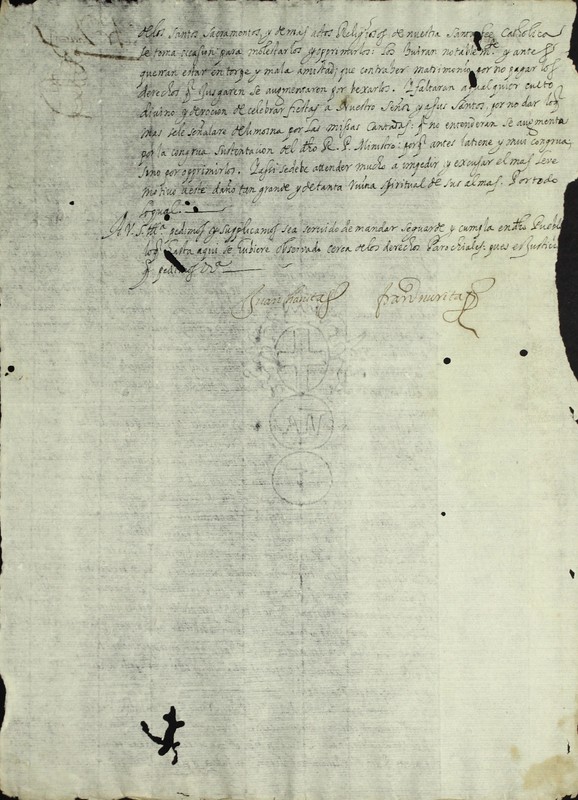 de los Santos Sacramentos, y demas actos Religiosos de nuestra Santa fee Catholica
se toma ocasion para molestarlos, y opprimirlos: Lo huiran notable mte y antes
querran estar en torpe y mala amistad; que contraher Matrimonio por no pagar los
derechos q̃ Juzgaren se augmentaron por vexarlos. Y faltaran a qualquier culto
divino y devocion de celebrar fiestas a Nuestro Señor, y a sus Santos, por no dar lo q̃
mas se le señalare de limosna por las missas Cantadas: q̃ no entenderan se augmenta
por la congrua sustentacion del dho R. P. Ministro: porq̃ antes la tiene y mui congrua,
sino por opprimirlos. Y assi se debe attender mucho a impedir y excusar el mas leve
motivo a este daño tan grande y de tanta ruina spiritual de sus almas. Por todo
lo qual
A V. S. Illma pedimos y supplicamos sea servido de mandar se guarde y cumpla en dho Pueblo
lo q̃ hasta aqui se hubiere observado cerca de los derechos Parochiales: pues es justicia
q̃ pedimos &a
Juan Franco
AN